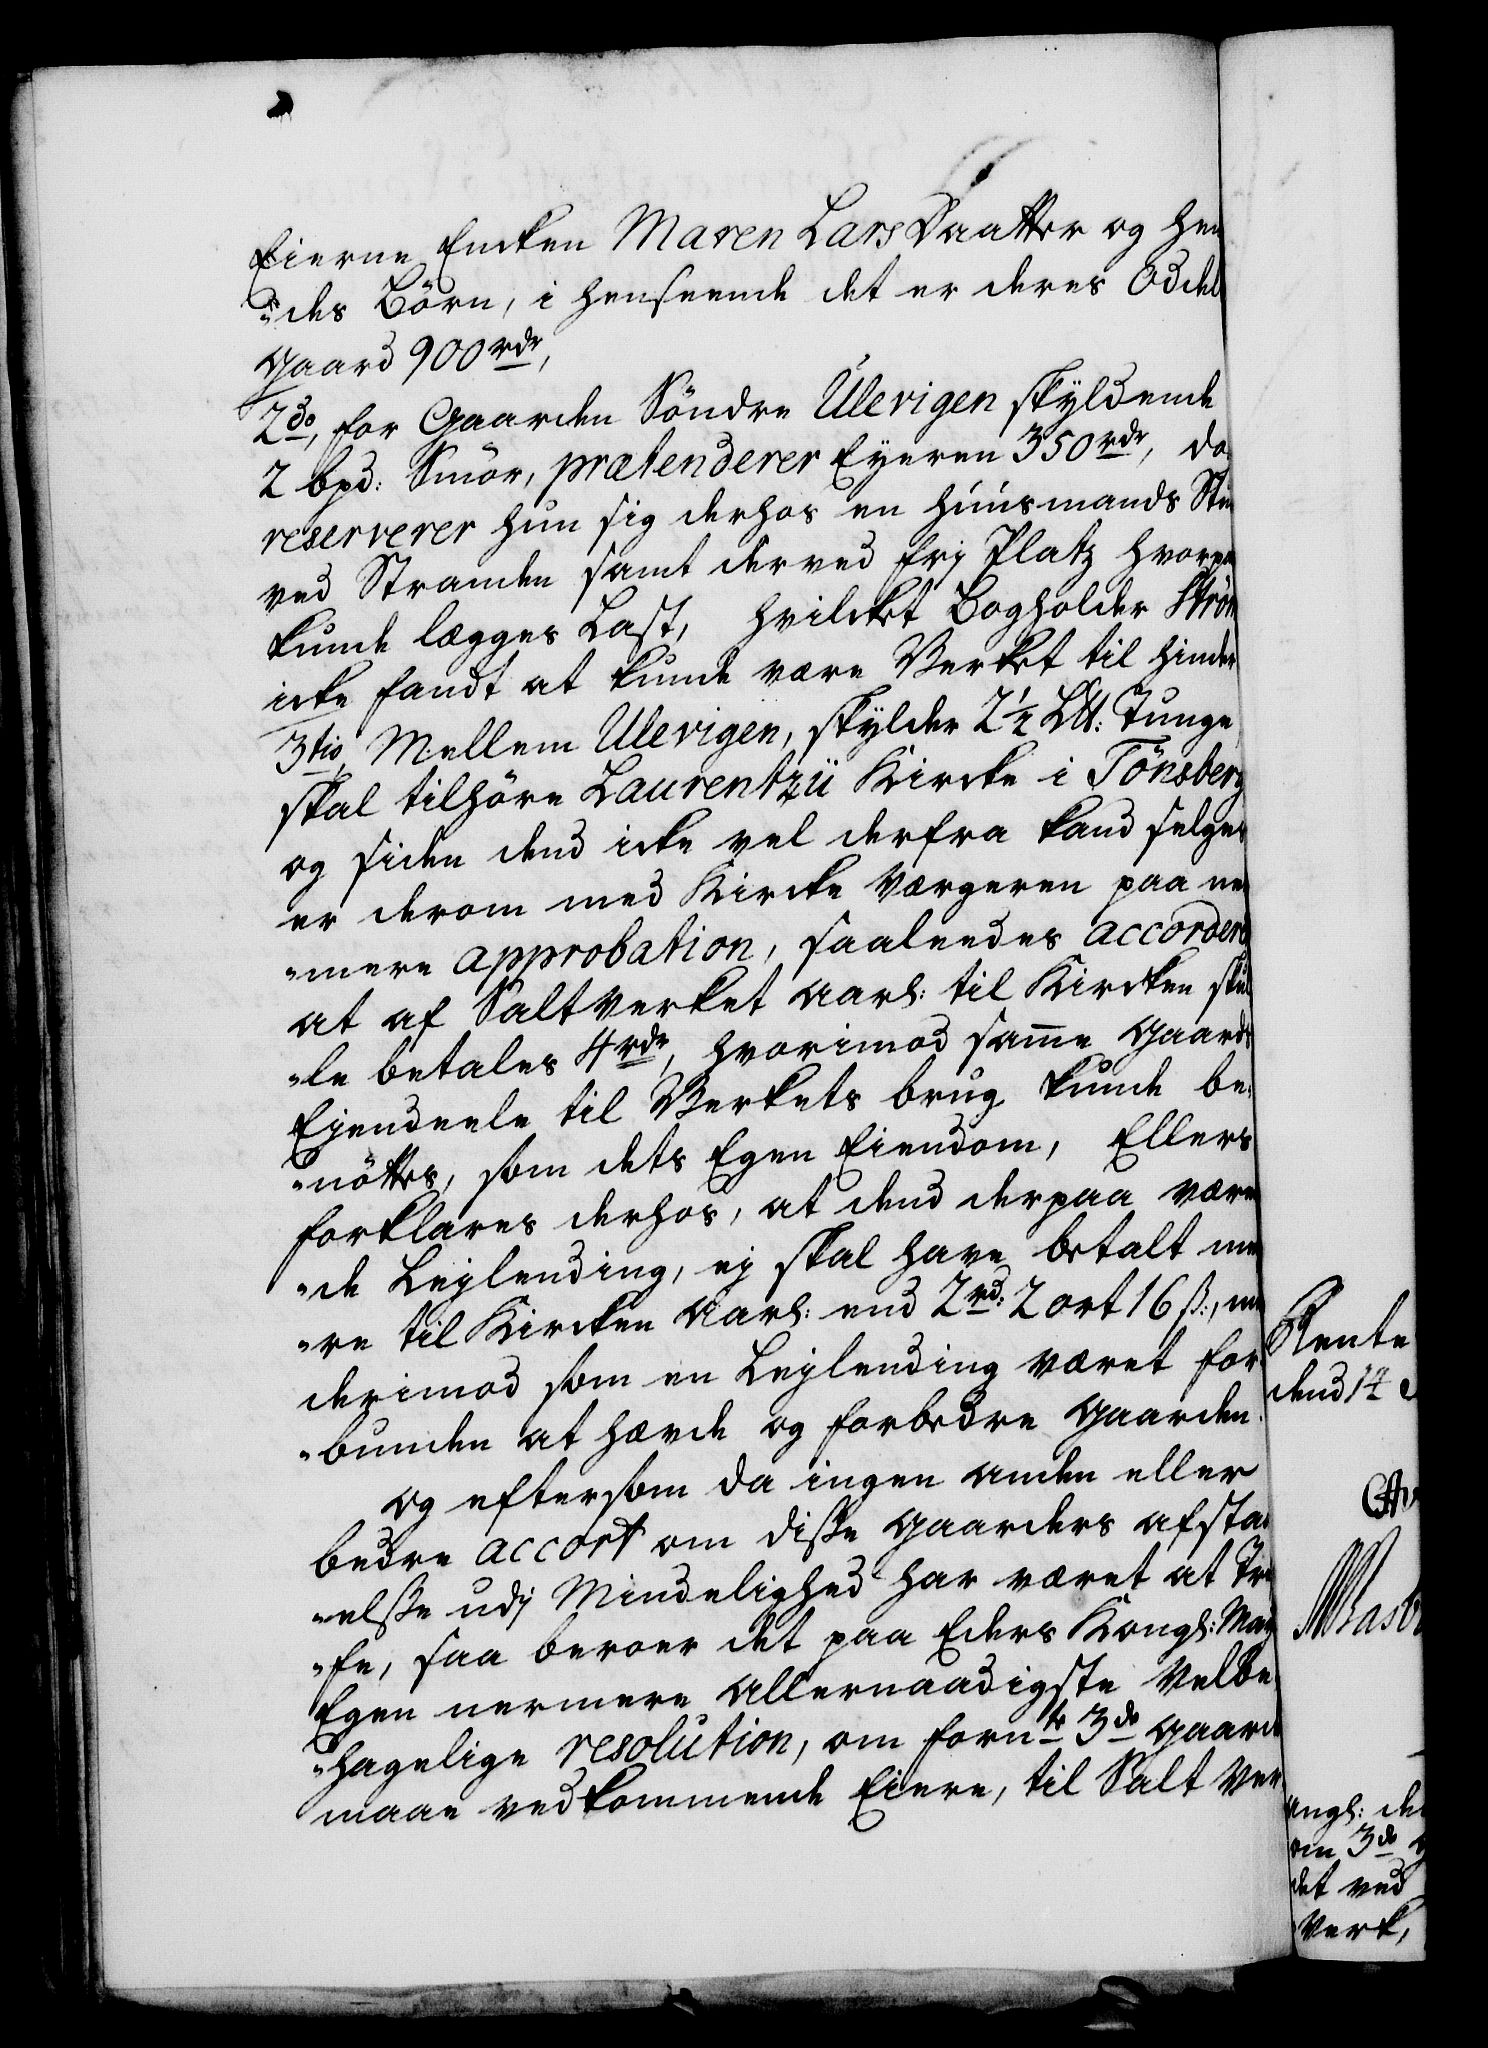 Eierne Encken Maren Lars Daatter og hen
"des Börn, i henseende det er deres Oddel
gaard 900 rdr,
2do, for Gaarden Söndre Ulevigen skyldende
2 bpd: Smör, prætenderer Eyeren 350 rdr, da
reserverer hun sig derhos en huusmands Stue
ved Stranden samt derved frj Platz hvorpaa
kunde lægges Last, hvilcket Bogholder Ström
icke fandt at kunde være Verket til hinder
3tio, Mellem Ulevigen, skylder 2½ L℔: Tunge,
skal tilhöre Laurentzii Kircke i Tönsberg
og siden dend icke vel derfra kand selges
er derom med Kircke Værgeren paa ner
"mere approbation, saaleedes accordert
at af Saltverket aarl: til Kircken skul
"le betales 4 rdr, hvorimod same gaards
Ejendeele til Verkets brug kunde be:
"nöttes, som dets Egen Eiendom, Ellers
forklares derhos, at dend derpaa væren
"de Lejlending, ej skal have betalt me
"re til Kircken aarl: end 2 rd: 2 ort 16 ß:, men
derimod som en Lejlending været for
"bunden at hævde og forbedre gaarden.
og eftersom da ingen anden eller
bedre accort om disse gaarders afstaa
"else udj Mindelighed har været at Tref
"fe, saa beroer det paa Eders Kongl: May
Egen nermere allernaadigste Velbe
"hagelige resolution, om fornte 3de gaarde
maae vedkommende Eiere, til Salt Ver
Rente
dend 14
ongl: de
om 3de g
det ved
Verk,